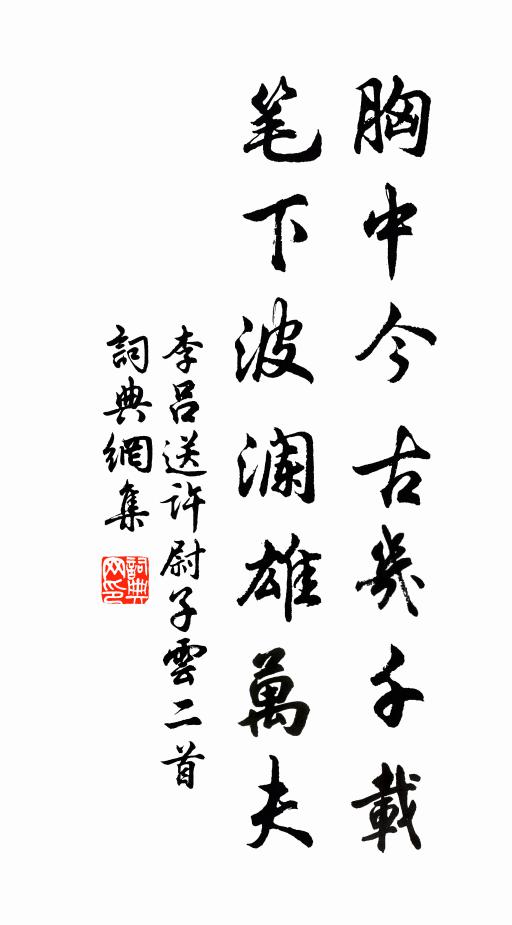 胸中今古幾千載
笔下波澜雄萬夫
李吕送許尉子雲二首
詞典網集
詞典网印